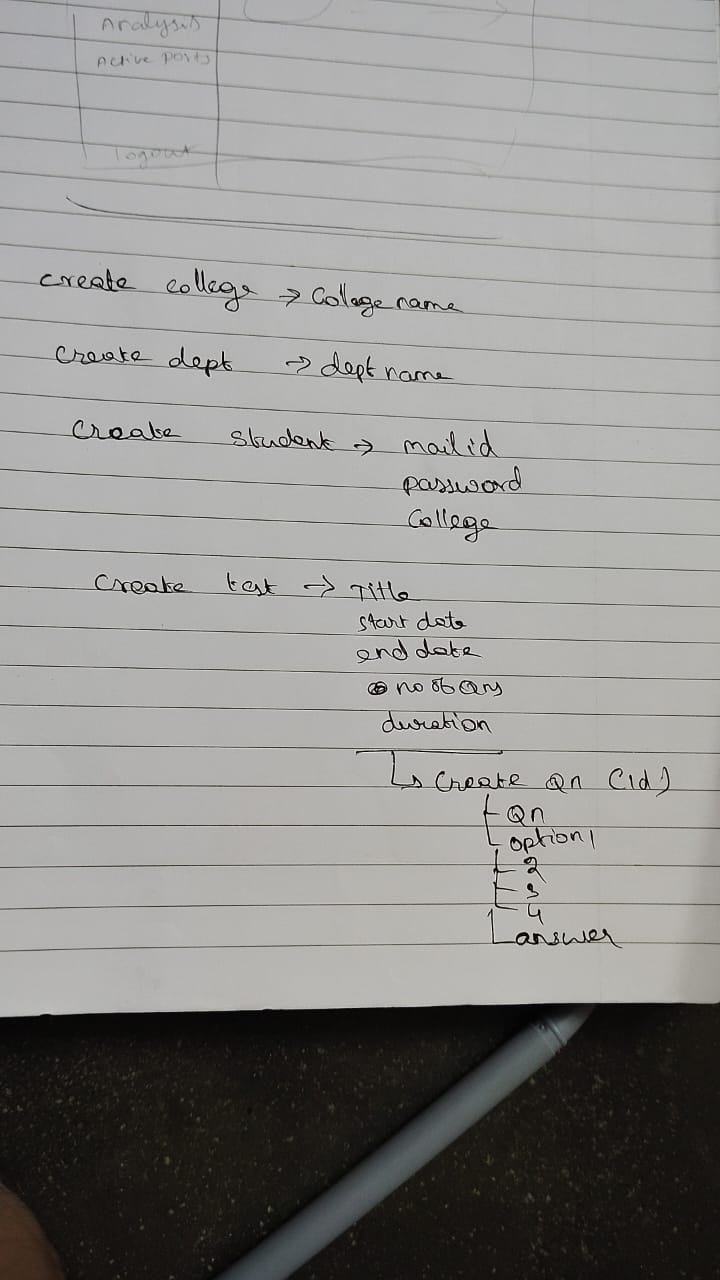 Analysis
Active posts
logout
create college → Colage name
Create dept → dept name
Create student → mail id
password
College
Create test → Title
start date
end date
no of Qns
duration
↳ Create Qn (id)
Qn
option 1
2
3
4
answer